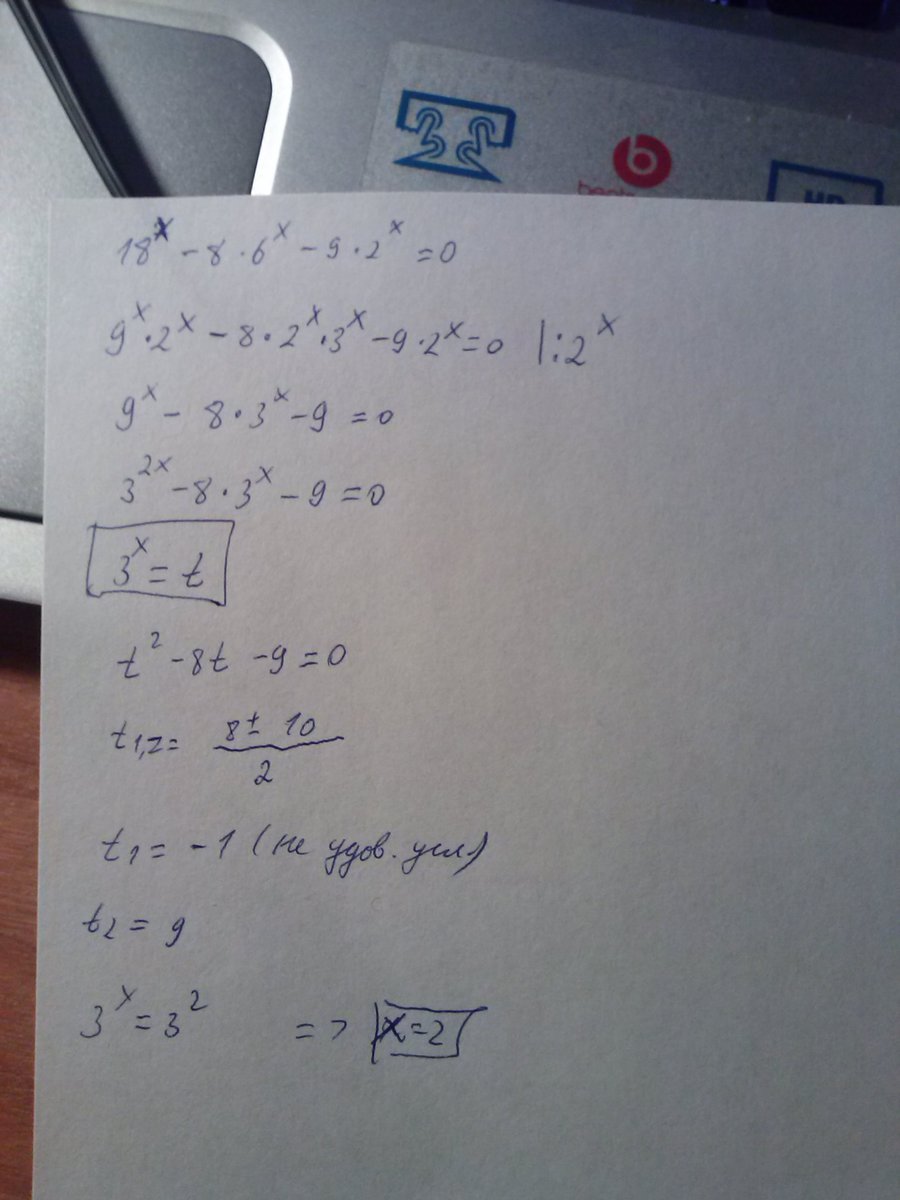 b
beats
HD
18^x - 8 · 6^x - 9 · 2^x = 0
9^x · 2^x - 8 · 2^x · 3^x - 9 · 2^x = 0 |: 2^x
9^x - 8 · 3^x - 9 = 0
3^{2x} - 8 · 3^x - 9 = 0
3^x = t
t^2 - 8t - 9 = 0
t_{1,2} = \frac{8 ± 10}{2}
t_1 = -1 (не удов. усл)
t_2 = 9
3^x = 3^2 => x = 2